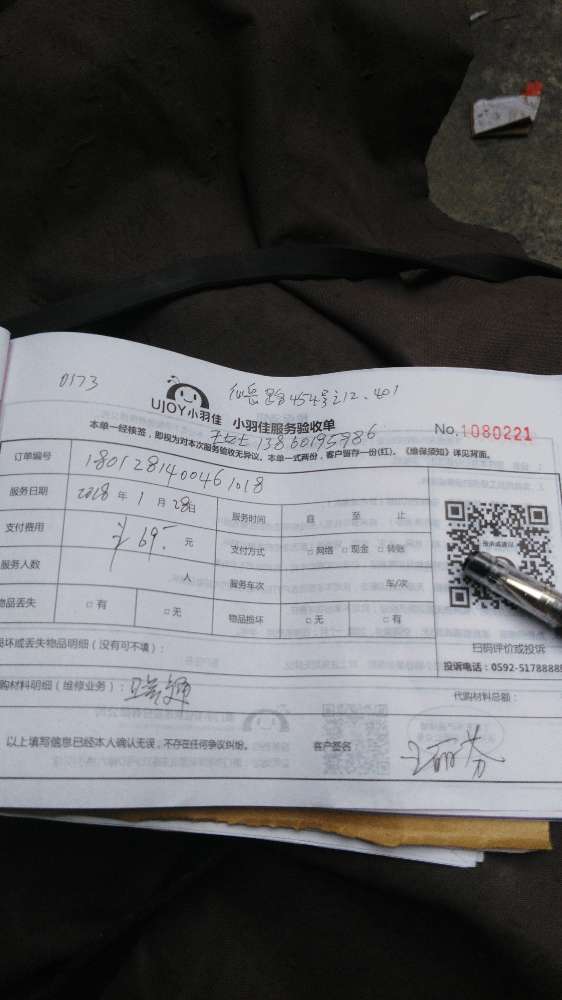 0173
UJOY小羽佳 小羽佳服务验收单
454号之12.401
No.1080221
王女士 13860195986
本单一经核签，即视为对本次服务验收无异议。本单一式两份，客户留存一份(红)。《维保须知》详见背面。
订单编号 180128140046 1018
服务日期 2018年1月28日 服务时间 自 至 止
支付费用 ¥69.- 元 支付方式 □网络 □现金 □转账
服务人数 人 服务车次 车/次
物品丢失 □有 □无 物品损坏 □无 □有
扫码评价或投诉
投诉电话：0592-5178888
损坏或丢失物品明细（没有可不填）：
购材料明细（维修业务）： 代购材料总额：
以上填写信息已经本人确认无误，不存在任何争议纠纷。 客户签名 王丽芬